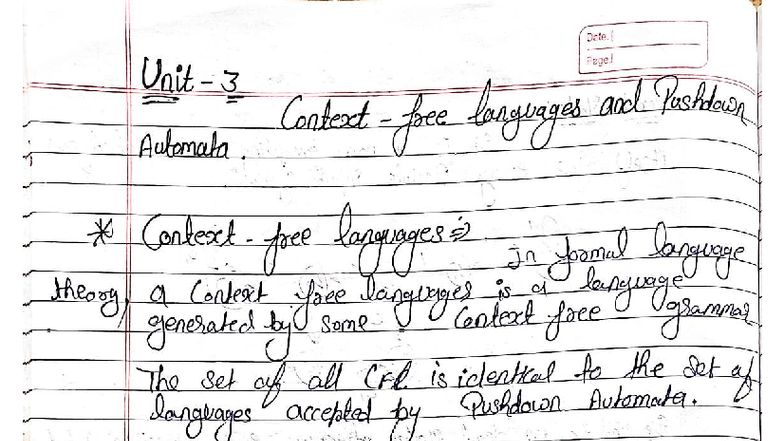 Date.
Page.
Unit - 3
Context - free languages and Pushdown
Automata.
* Context - free languages ⇒
In formal language
theory, a Context free languages is a language
generated by some Context free grammar
The set of all CFL is identical to the set of
languages accepted by Pushdown Automata.